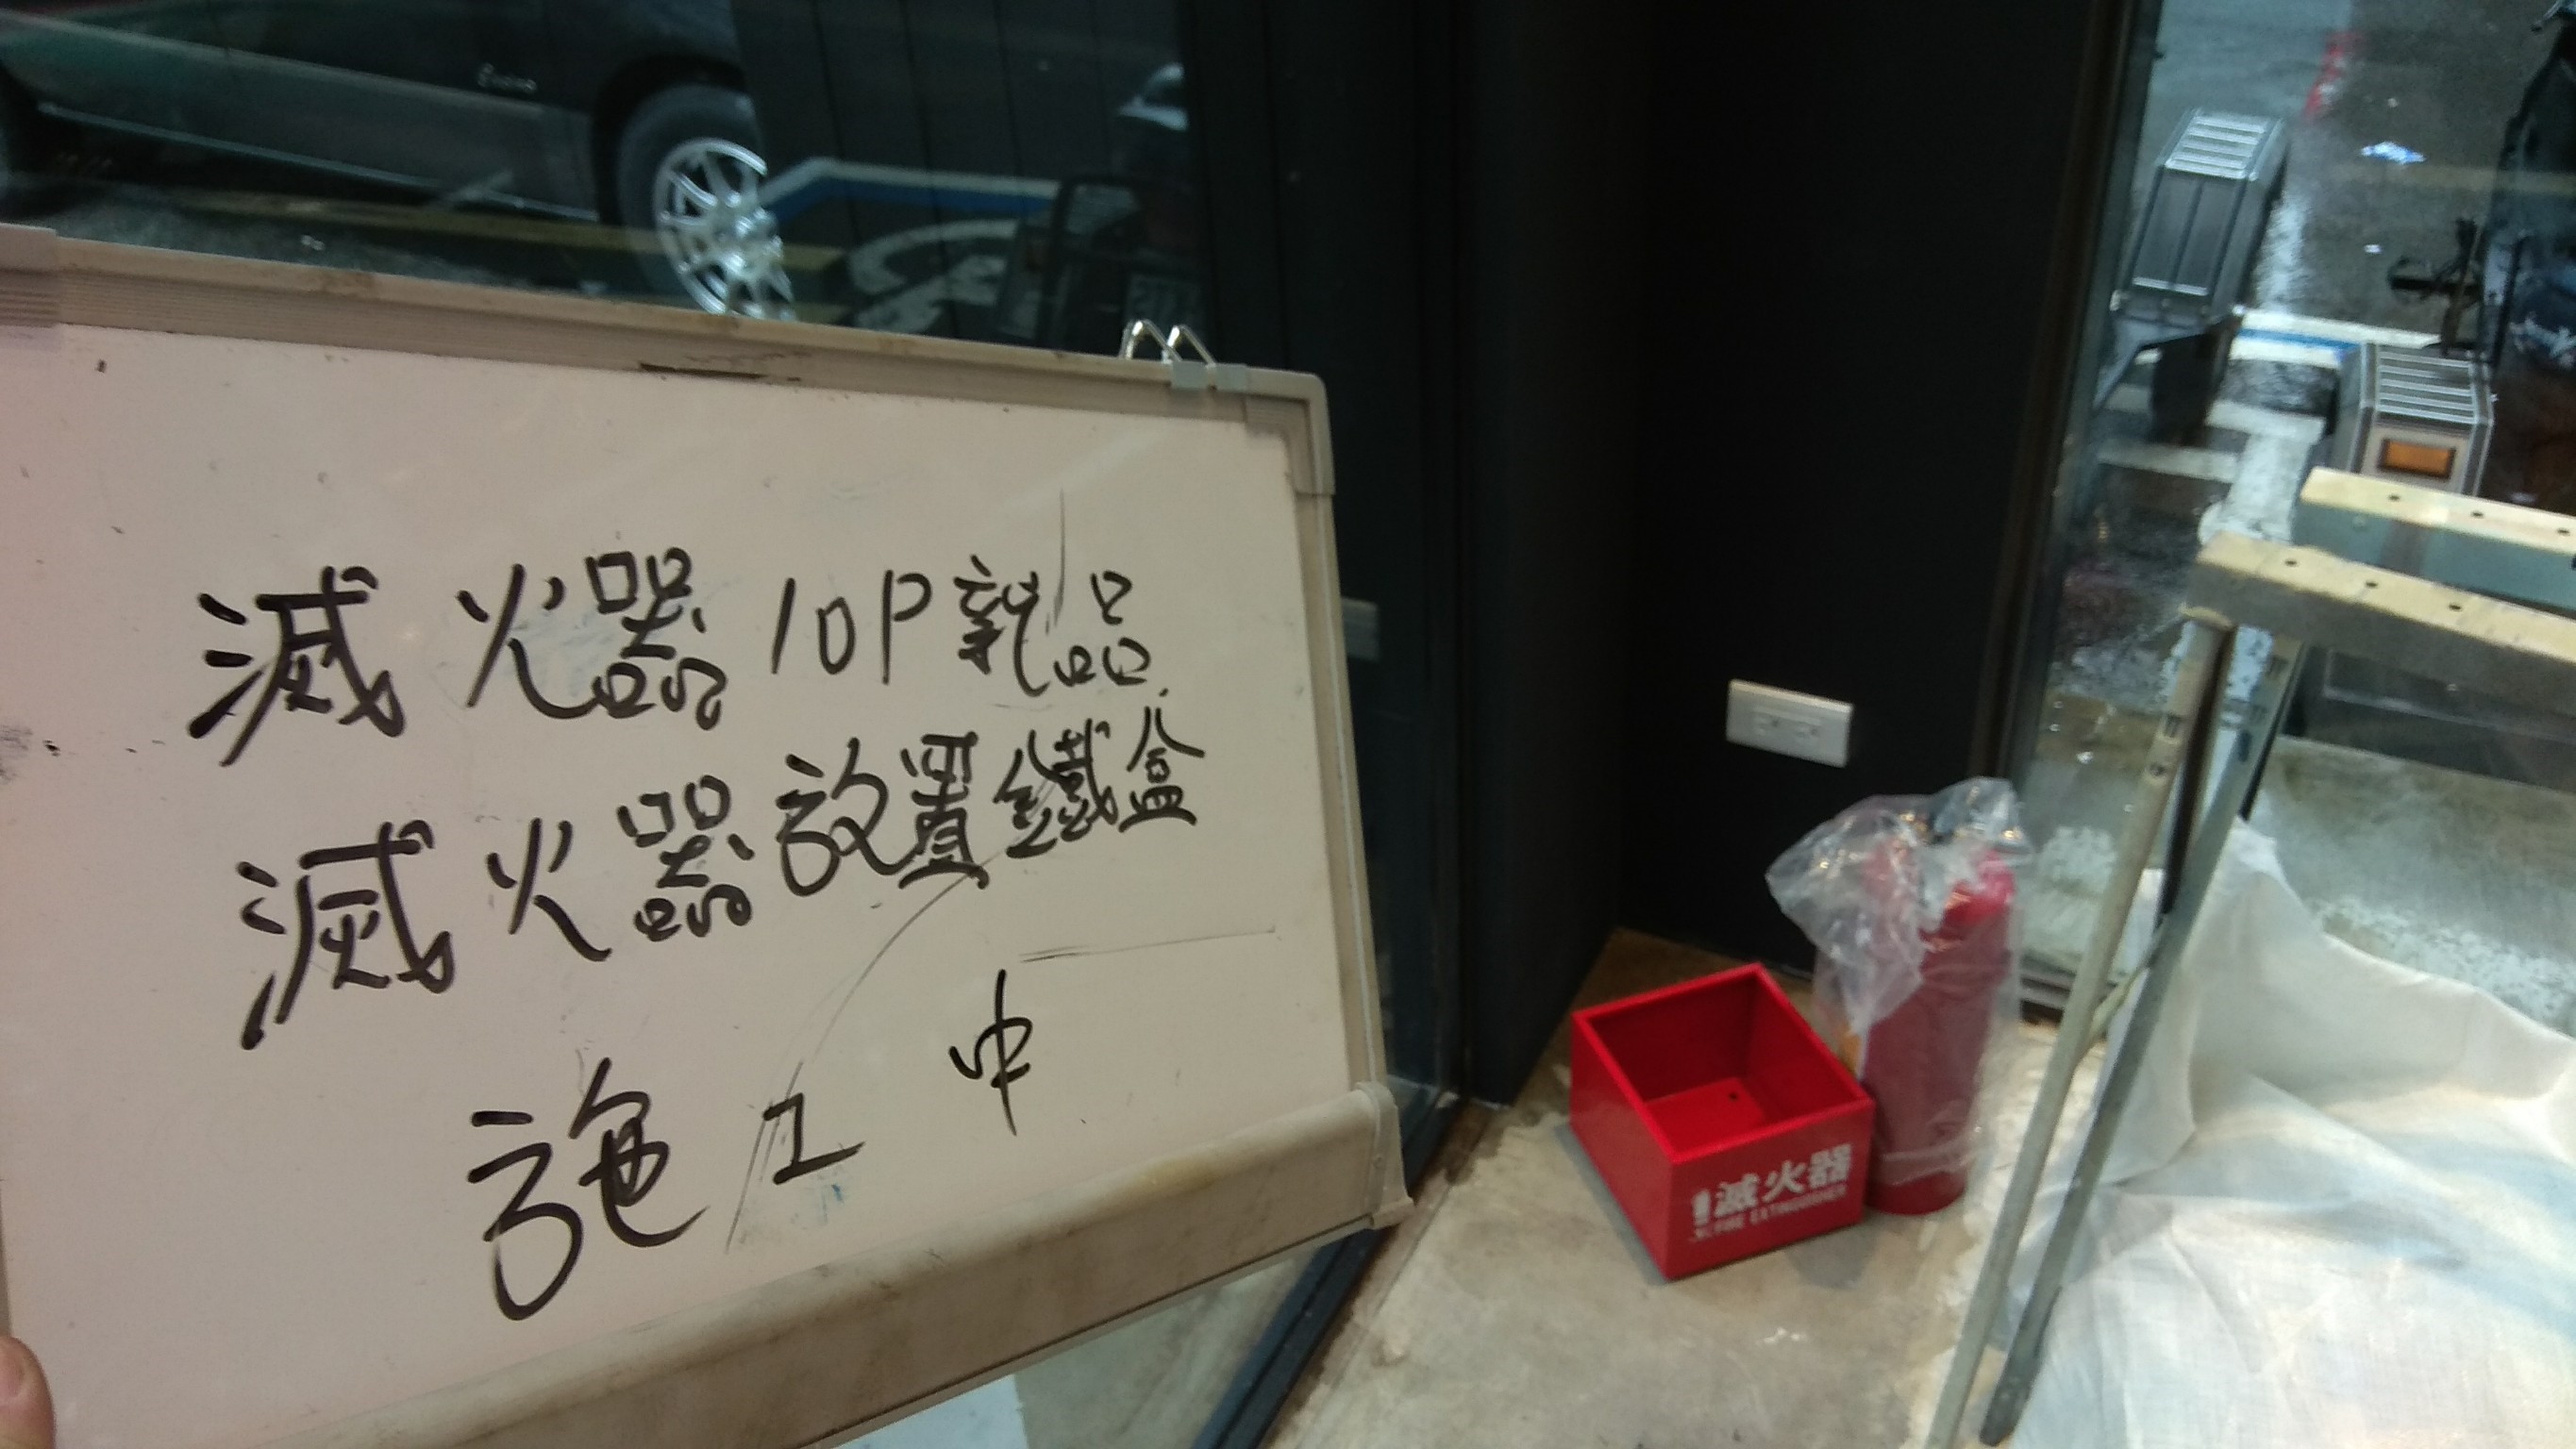 滅火器10P新品
滅火器放置鐵盒
施工中
滅火器
FIRE EXTINGUISHER